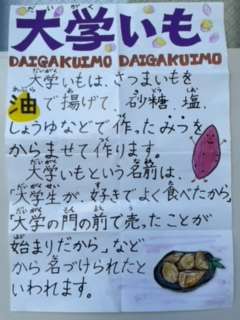 大学いも
DAIGAKUIMO DAIGAKUIMO
大学いもは、さつまいもを
油で揚げて、砂糖、塩、
しょうゆなどで作ったみつを
からませて作ります。
大学いもという名前は、
「大学生が好きでよく食べたから」
「大学の門の前で売ったことが
始まりだから」など
から名づけられたと
いわれます。